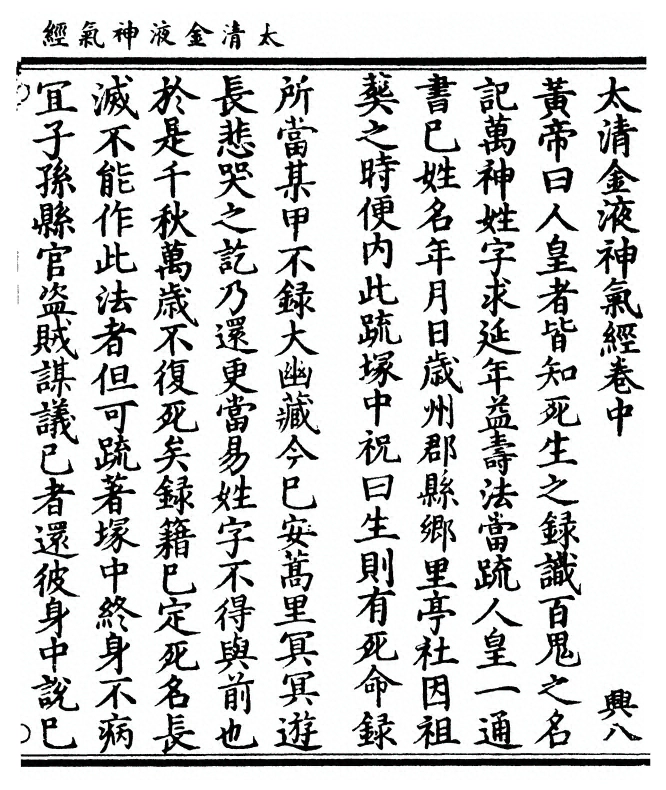 太清金液神氣經
太清金液神氣經卷中　興八
黃帝曰人皇者皆知死生之録識百鬼之名
記萬神姓字求延年益壽法當䟽人皇一通
書已姓名年月日歲州郡縣鄉里亭社因祖
葬之時便内此䟽塚中祝曰生則有死命録
所當某甲不録大幽藏今已安蒿里冥冥遊
長悲哭之訖乃還更當易姓字不得與前也
於是千秋萬歲不復死矣録籍已定死名長
滅不能作此法者但可䟽著塚中終身不病
宜子孫縣官盜賊謀議已者還彼身中說已